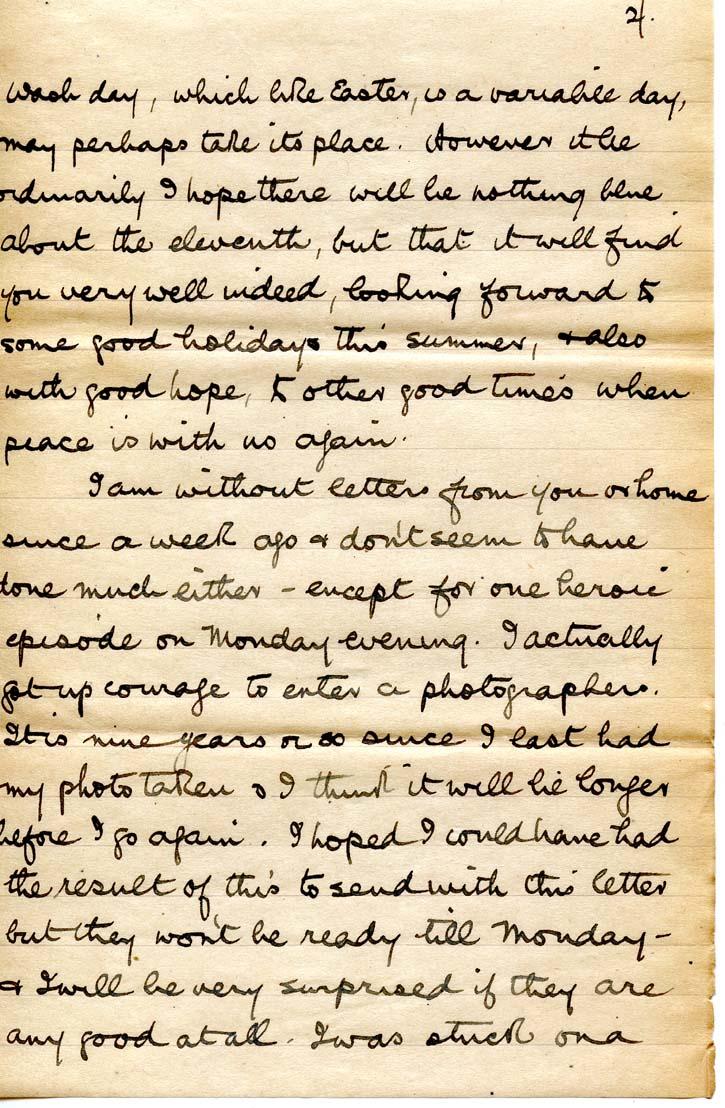 2.
wash day, which like Easter, is a variable day,
may perhaps take its place. However it be
ordinarily I hope there will be nothing blue
about the eleventh, but that it will find
you very well indeed, looking forward to
some good holidays this summer, & also
with good hope, to other good times when
peace is with us again.
I am without letters from you or home
since a week ago & don't seem to have
done much either – except for one heroic
episode on Monday evening. I actually
got up courage to enter a photographers.
It is nine years or so since I last had
my photo taken & I think it will be longer
before I go again. I hoped I could have had
the result of this to send with this letter
but they won't be ready till Monday –
& I will be very surprised if they are
any good at all. I was stuck on a